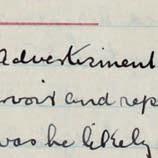 Advertisment
rvoir and rep
was he likely